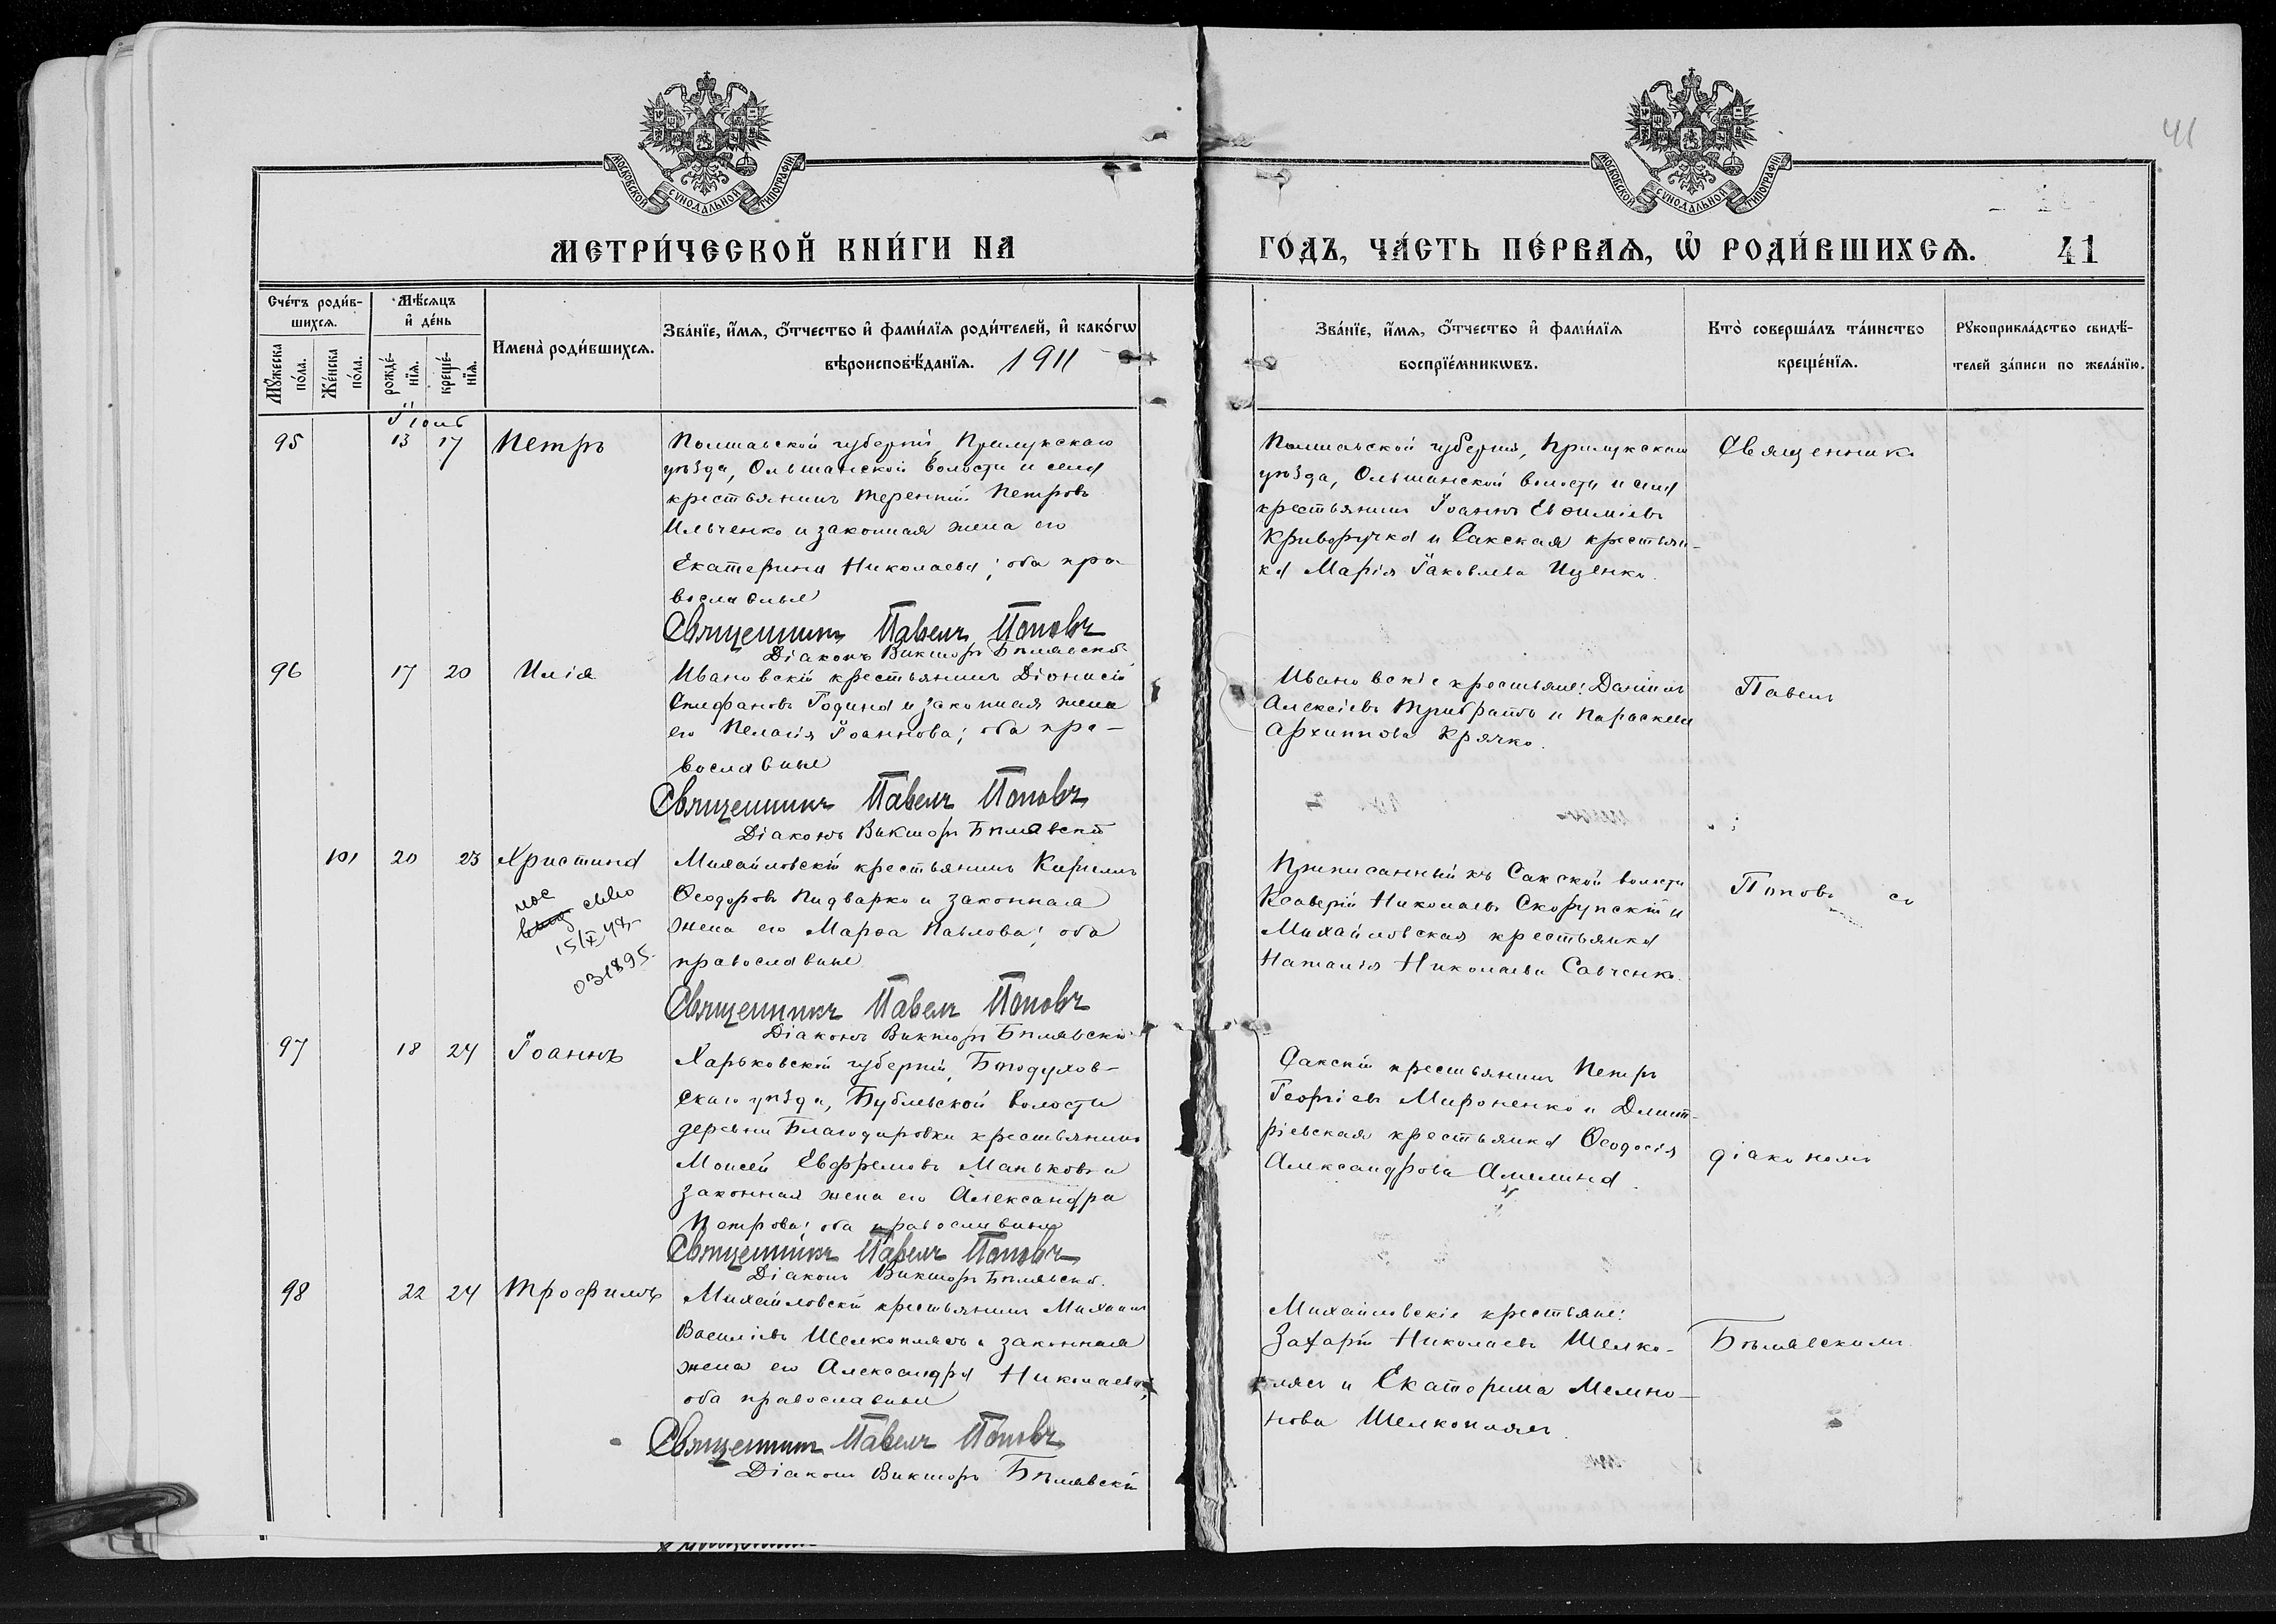 41
МОСКОВСКОЙ СѴНОДАЛЬНОЙ ТИПОГРАФІИ
МОСКОВСКОЙ СѴНОДАЛЬНОЙ ТИПОГРАФІИ
МЕТРИ́ЧЕСКОЙ КНИ́ГИ НА
ГО́ДЪ, ЧА́СТЬ ПЕ́РВАѦ, Ѡ҆ РОДИ́ВШИХСѦ.
41
Сче́тъ роди́в-
шихсѧ.
Мꙋ́жеска
по́ла.
Же́нска
по́ла.
Мѣ́сѧцъ
и҆ де́нь
рожде́-
нїѧ.
креще́-
нїѧ.
Имена̀ роди́вшихсѧ.
Зва́нїе, и҆́мѧ, ѻ҆́тчество и҆ фами́лїѧ роди́телей, и҆ како́гѡ
вѣроисповѣ́данїѧ. 1911
Зва́нїе, и҆́мѧ, ѻ҆́тчество и҆ фами́лїѧ
воспрїе́мникѡвъ.
Кто̀ соверша́лъ та́инство
креще́нїѧ.
Рꙋкоприкла́дство свидѣ́-
телей за́писи по жела́нїю.
Іюнь
95 13 17 Петръ
Полтавской губерніи, Прилукскаго
уѣзда, Ольшанской волости и села
крестьянинъ Терентій Петровъ
Ильченко и законная жена его
Екатерина Николаева; оба пра-
вославные
Священникъ Павелъ Поповъ
Діаконъ Викторъ Бѣлявскій
Полтавской губерніи, Прилукскаго
уѣзда, Ольшанской волости и села
крестьянинъ Іоаннъ Евѳиміевъ
Криворучка и Сакская крестьян-
ка Марія Іаковлева Ищенко.
Священникъ
96 17 20 Илія
Ивановскій крестьянинъ Діонисій
Стефановъ Година и законная жена
его Пелагія Іоаннова; оба пра-
вославные
Священникъ Павелъ Поповъ
Діаконъ Викторъ Бѣлявскій
Ивановскіе крестьяне: Даніилъ
Алексіевъ Трибратъ и Параскева
Архиппова Крячко.
Павелъ
101 20 23 Христина
15/X 48
031895
Михайловскій крестьянинъ Кириллъ
Ѳеодоровъ Пидварко и законная
жена его Марѳа Павлова; оба
православные
Священникъ Павелъ Поповъ
Діаконъ Викторъ Бѣлявскій
Приписанный къ Сакской волости
Ксаверій Николаевъ Скорупскій и
Михайловская крестьянка
Наталія Николаева Савченко.
Поповъ съ
97 18 24 Іоаннъ
Харьковской губерніи, Богодухов-
скаго уѣзда, Волости
деревни Благодаровки крестьянинъ
Моисей Евфремовъ Маньковъ и
законная жена его Александра
Петрова; оба православные
Священникъ Павелъ Поповъ
Діаконъ Викторъ Бѣлявскій.
Сакскій крестьянинъ Петръ
Георгіевъ Мироненко и Дмит-
ріевская крестьянка Ѳеодосія
Александрова Амелина.
діакономъ
98 22 24 Трофимъ
Михайловскій крестьянинъ Михаилъ
Василіевъ Шелкоплясъ и законная
жена его Александра Николаева;
оба православные
Священникъ Павелъ Поповъ
Діаконъ Викторъ Бѣлявскій
Михайловскіе крестьяне:
Захарій Николаевъ Шелко-
плясъ и Екатерина Мемно-
нова Шелкоплясъ.
Бѣлявскимъ.